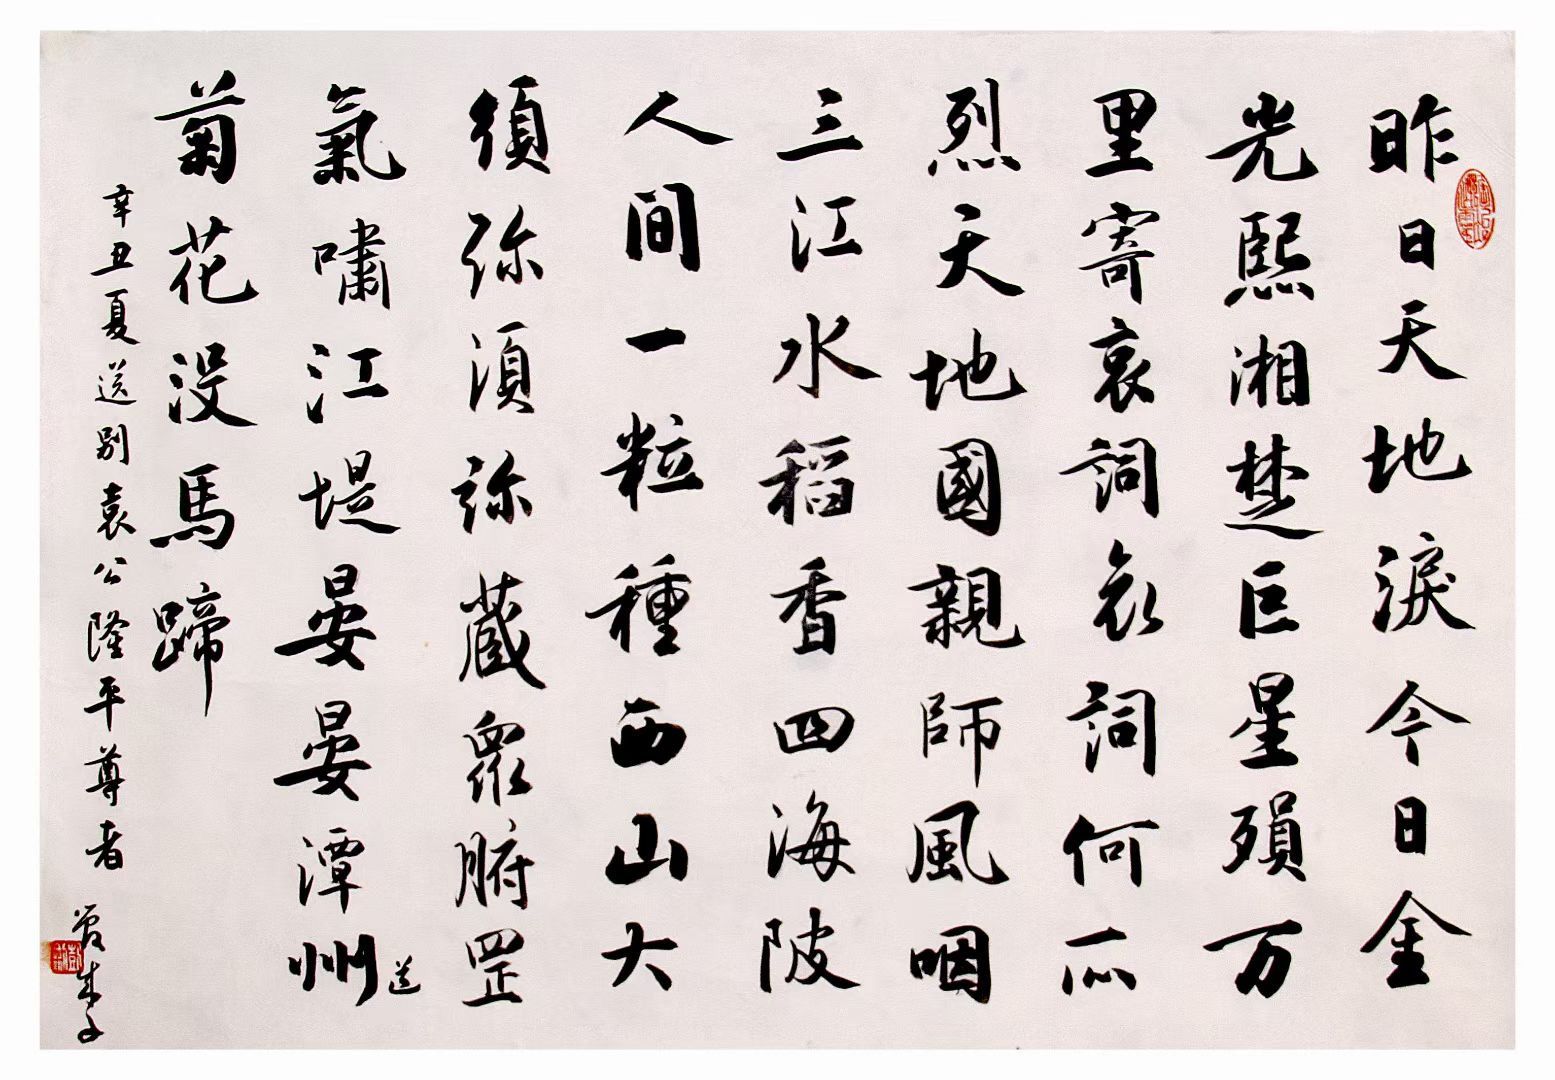 昨日天地淚今日金
光熙湘楚巨星殞万
里寄哀詞哀詞何所
烈天地國親師風咽
三江水稻香四海陂
人间一粒種西山大
須弥須弥蔵眾腑罡
氣嘯江堤晏晏潭州送
菊花没馬蹄
辛丑夏送别袁公隆平尊者